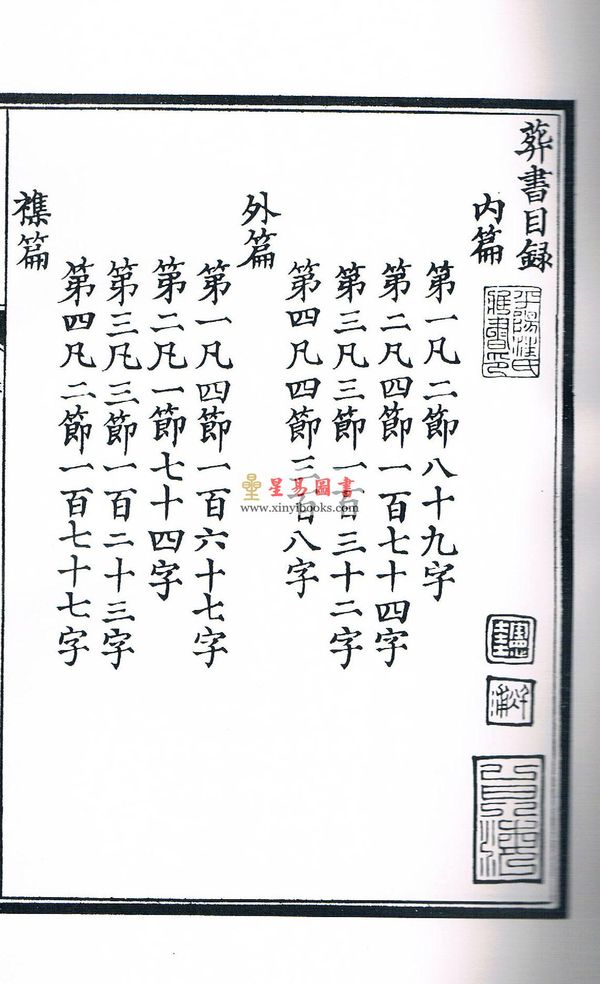 葬書目錄
内篇
第一凡二節八十九字
第二凡四節一百七十四字
第三凡三節一百三十二字
第四凡四節三百八字
外篇
第一凡四節一百六十七字
第二凡一節七十四字
第三凡三節一百二十三字
第四凡二節一百七十七字
襍篇
平陽汪氏
藏書印
星易圖書
www.xinyibooks.com